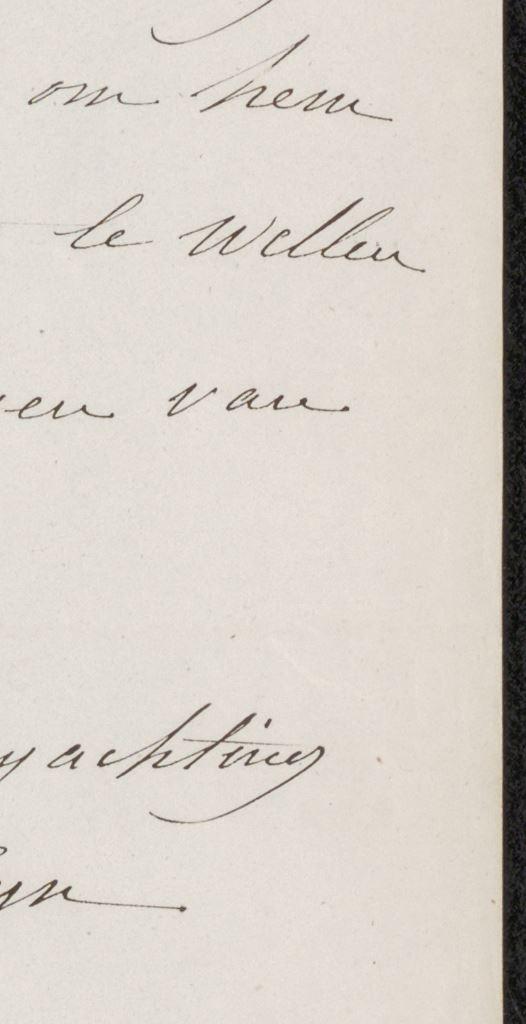 om hem
te willen
en van
yachting
yn